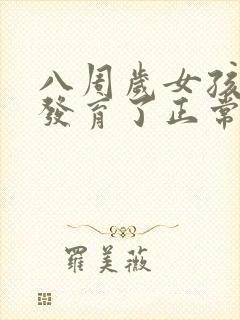 八周歲女孩
發育了正常
羅美薇